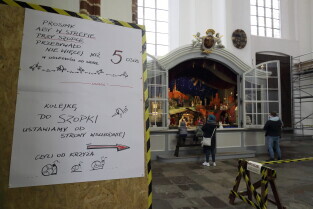 PROSIMY
ABY W STREFIE
PRZY SZOPCE
PRZEBYWAŁO
NIE WIĘCEJ NIŻ
5 OSÓB
KOLEJKĘ
DO SZOPKI
USTAWIAMY OD
STRONY
CZYLI OD KRZYŻA